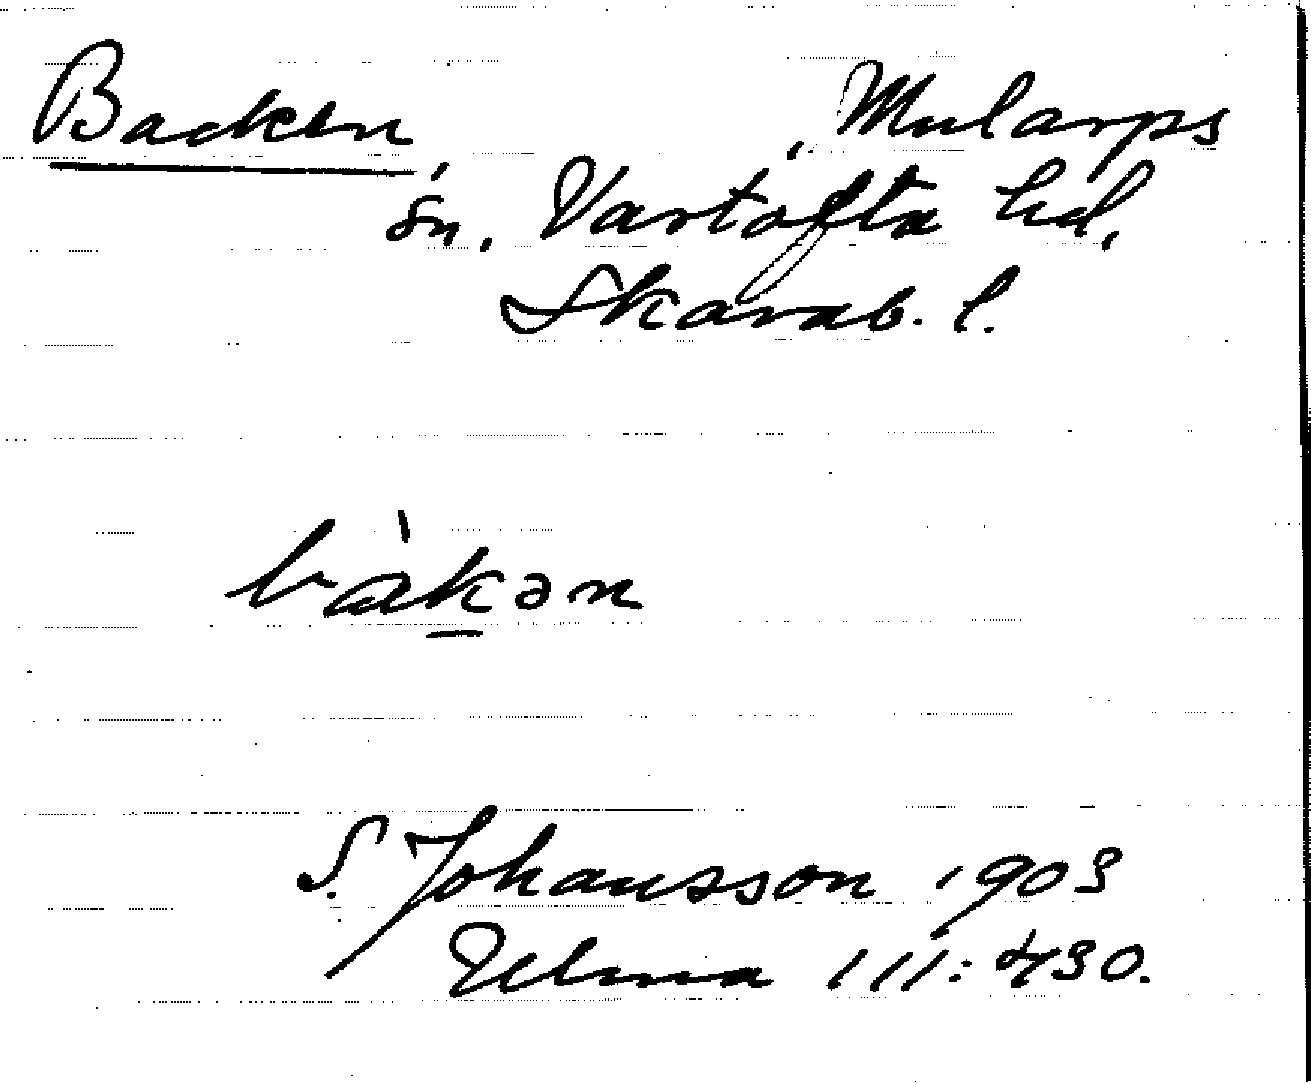 Backen Mularps
sn, Vartofta hd,
Skarab. l.
bàk̲ən
S. Johansson 1903
Ulma 111:430.